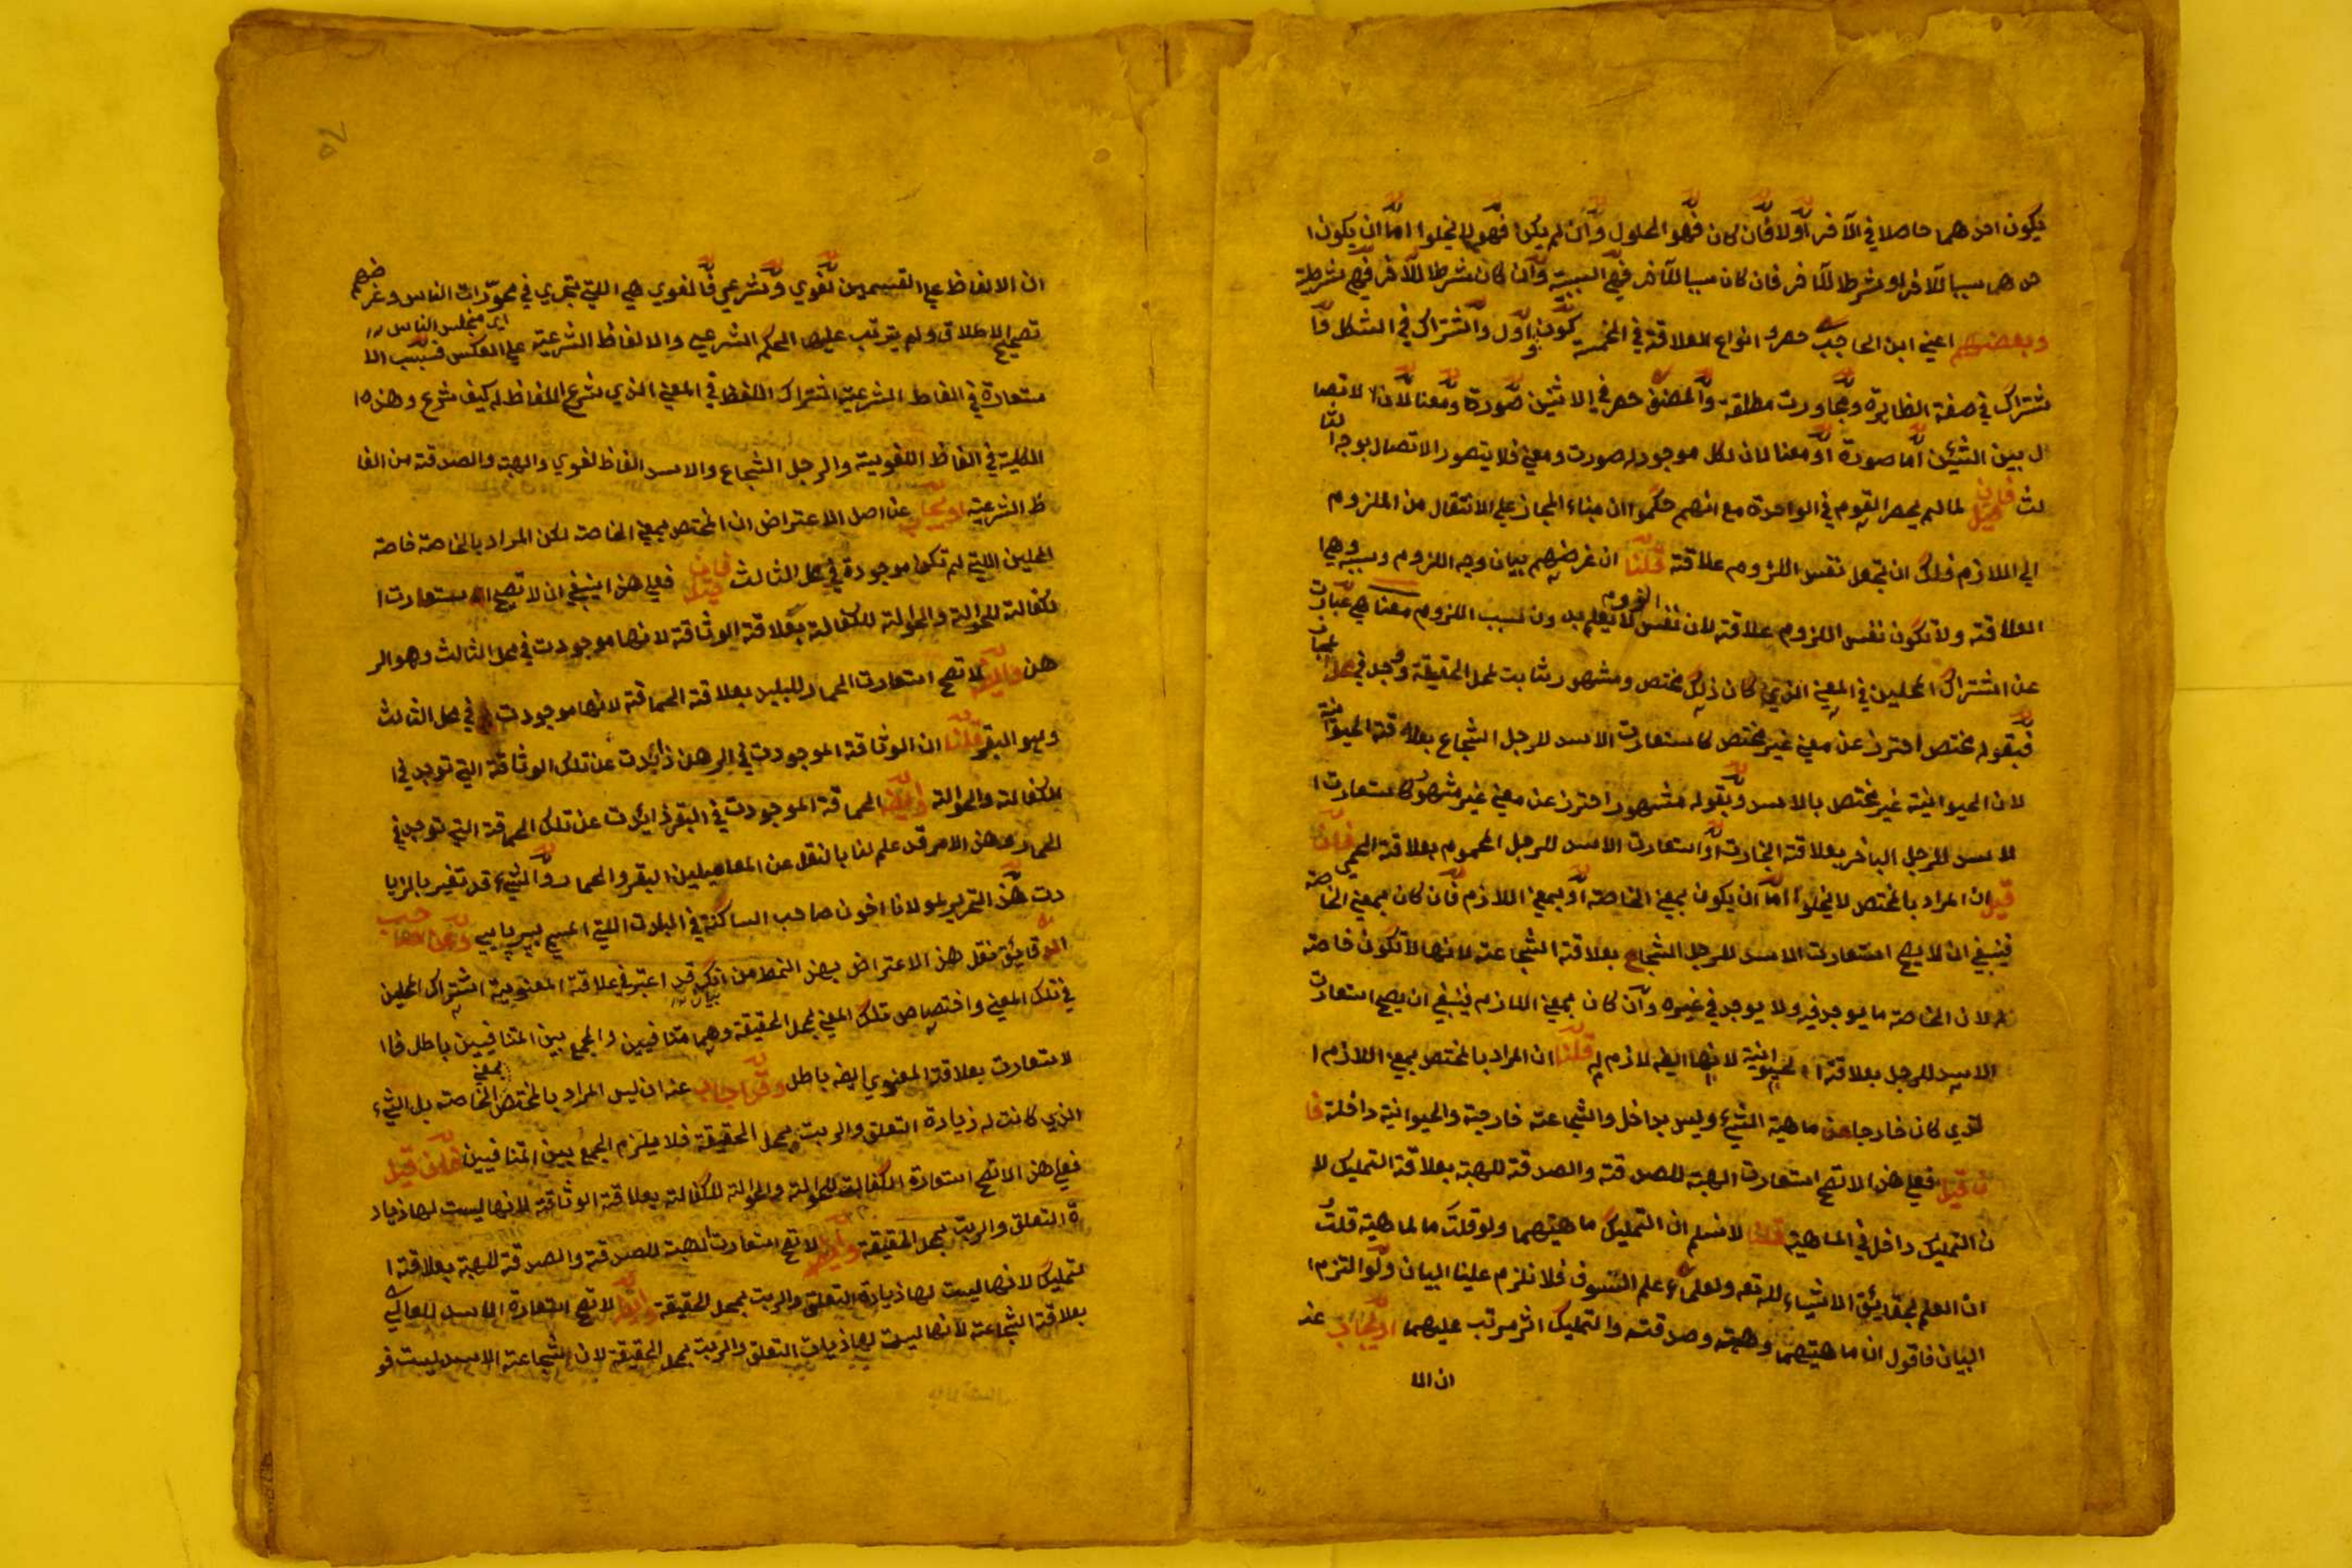 يكون احدهما حاصلا في الآخر اولا فان كان فهو الحلول وان لم يكن فهو لا يخلوا اما ان يكون ا
حدهما سببا للآخر او شرطا للآخر فان كان سببا للآخر فهي السببية وان كان شرطا للآخر فهي شرطية
وبعضهم اعني ابن الحاجب حصروا انواع العلاقة في الخمسة كون واول والاشتراك في الشكل وا
شتراك في صفة الظاهرة ومجاورت مطلقة والمصنف حصر في الاثنين صورة ومعنا لان الاتصا
ل بين الشيئين اما صورة او معنا لان لكل موجود له صورت ومعني فلا يتصور الاتصال بوجه ثا
لث فان قيل لما لم يحصر القوم في الواحدة مع انهم حكموا ان مبناء المجاز علي الانتقال من الملزوم
الي اللازم فلك ان تجعل نفس اللزوم علاقة قلنا ان غرضهم بيان وجه اللزوم وسببه وهي ا
لعلاقة ولا تكون نفس اللزوم علاقة لان نفس اللزوم لا يعلم بدون سبب اللزوم معنا هي عبارت
عن اشتراك المحلين في المعني الذي كان ذلك مختص ومشهور ثابت لمحل الحقيقة وجد في محل المجاز
فبقوله مختص احترز عن معني غير مختص كاستعارت الاسد للرجل الشجاع بعلاقة الحيوانية
لان الحيوانية غير مختص بالاسد وبقوله مشهور احترز عن معني غير مشهور كاستعارت ا
لاسد للرجل الباخر بعلاقة البخارت او استعارت الاسد للرجل المحموم بعلاقة الحمي فان
قيل ان المراد بالمختص لا يخلوا اما ان يكون بمعني الخاصة او بمعني اللازم فان كان بمعني الخاصة
فينبغي ان لا يصح استعارت الاسد للرجل الشجاع بعلاقة الشجاعة لانها لا تكون خاصة
لان الخاصة ما يوجد فيه ولا يوجد في غيره وان كان بمعني اللازم فينبغي ان يصح استعارت
الاسد للرجل بعلاقة الحيوانية لانها ايضه لازم له قلنا ان المراد بالمختص بمعني اللازم ا
لذي كان خارجا عن ماهية الشيء وليس بداخل والشجاعة خارجة والحيوانية داخلة فا
ن قيل فعلي هذا لا تصح استعارت الهبة للصدقة والصدقة للهبة بعلاقة التمليك لا
ن التمليك داخل في الماهية قلنا لا نسلم ان التمليك ماهيتهما ولو قلت ما لماهية قلت
ان العلم بحقايق الاشياء لله تعه ولعلماء علم التسوف فلا نلزم علينا البيان ولو التزم ا
لبيان فاقول ان ماهيتهما وهبته وصدقته والتمليك اثر مرتب عليهما او يجاب عنه
ان الا
ان الالفاظ علي القسمين لغوي وشرعي فالغوي هي اللتي تجري في محورات الناس وغرضهم
اي مجلس الناس
تصحيح الاطلاق ولم يترتب عليها الحكم الشرعي والالفاظ الشرعية علي العكس فسبب الا
ستعارة في الفاظ الشرعية اشتراك اللفظ في المعني الذي شرع اللفظ له كيف شرع وهذه ا
لكلية في الفاظ اللغوية والرجل الشجاع والاسد الفاظ لغوي والهبة والصدقة من الفا
ظ الشرعية او يجاب عن اصل الاعتراض ان المختص بمعني الخاصة لكن المراد بالخاصة خاصة
المحلين اللتي لم تكن موجودة في محل الثالث فان قيل فعلي هذا ينبغي ان لا تصح استعارت ا
لكفالة للحوالة والحوالة للكفالة بعلاقة الوثاقة لانها موجودت في محل الثالث وهو الر
هن وايضه لا تصح استعارت الحمار للبليد بعلاقة الحماقة لانها موجودت في محل الثالث
وهو البقر قلنا ان الوثاقة الموجودت في الرهن زايدت عن تلك الوثاقة التي توجد في ا
لكفالة والحوالة وايضه الحماقة الموجودت في البقر زايدت عن تلك الحماقة التي توجد في
الحمار وهذا الامر قد علم لنا بالنقل عن المعاملين البقر والحمار والشيء قد تغير بالزيا
دت هذا التحرير لمولانا اخون صاحب الساكنة في البلدت اللتي المسمي وصاحب
الدقايق نقل هذا الاعتراض بهذا النمط من انك قد اعتبر في علاقة المعنوية اشتراك المحلين
في تلك المعني واختصاص تلك المعني بمحل الحقيقة وهما متنافيين والجمع بين المتنافيين باطل فا ا
لاستعارت بعلاقة المعنوي ايضه باطل وقد اجاب عنه ان ليس المراد بالمختص بمعني الخاصة بل الشيء
الذي كانت له زيادة التعلق والربت بمحل الحقيقة فلا يلزم الجمع بين المتنافيين فان قيل
فعلي هذا لا تصح استعارة الكفالت للحوالة والحوالة للكفالة بعلاقة الوثاقة لانها ليست لها زياد
ة التعلق والربت بمحل الحقيقة وايضه لا تصح استعارت الهبة للصدقة والصدقة للهبة بعلاقة ا
لتمليك لانها ليست لها زيادة التعلق والربت بمحل الحقيقة وايضه لا تصح استعارة الاسد للعالي
بعلاقة الشجاعة لانها ليست لها زيادت التعلق والربت بمحل الحقيقة لان شجاعة الاسد ليست فو